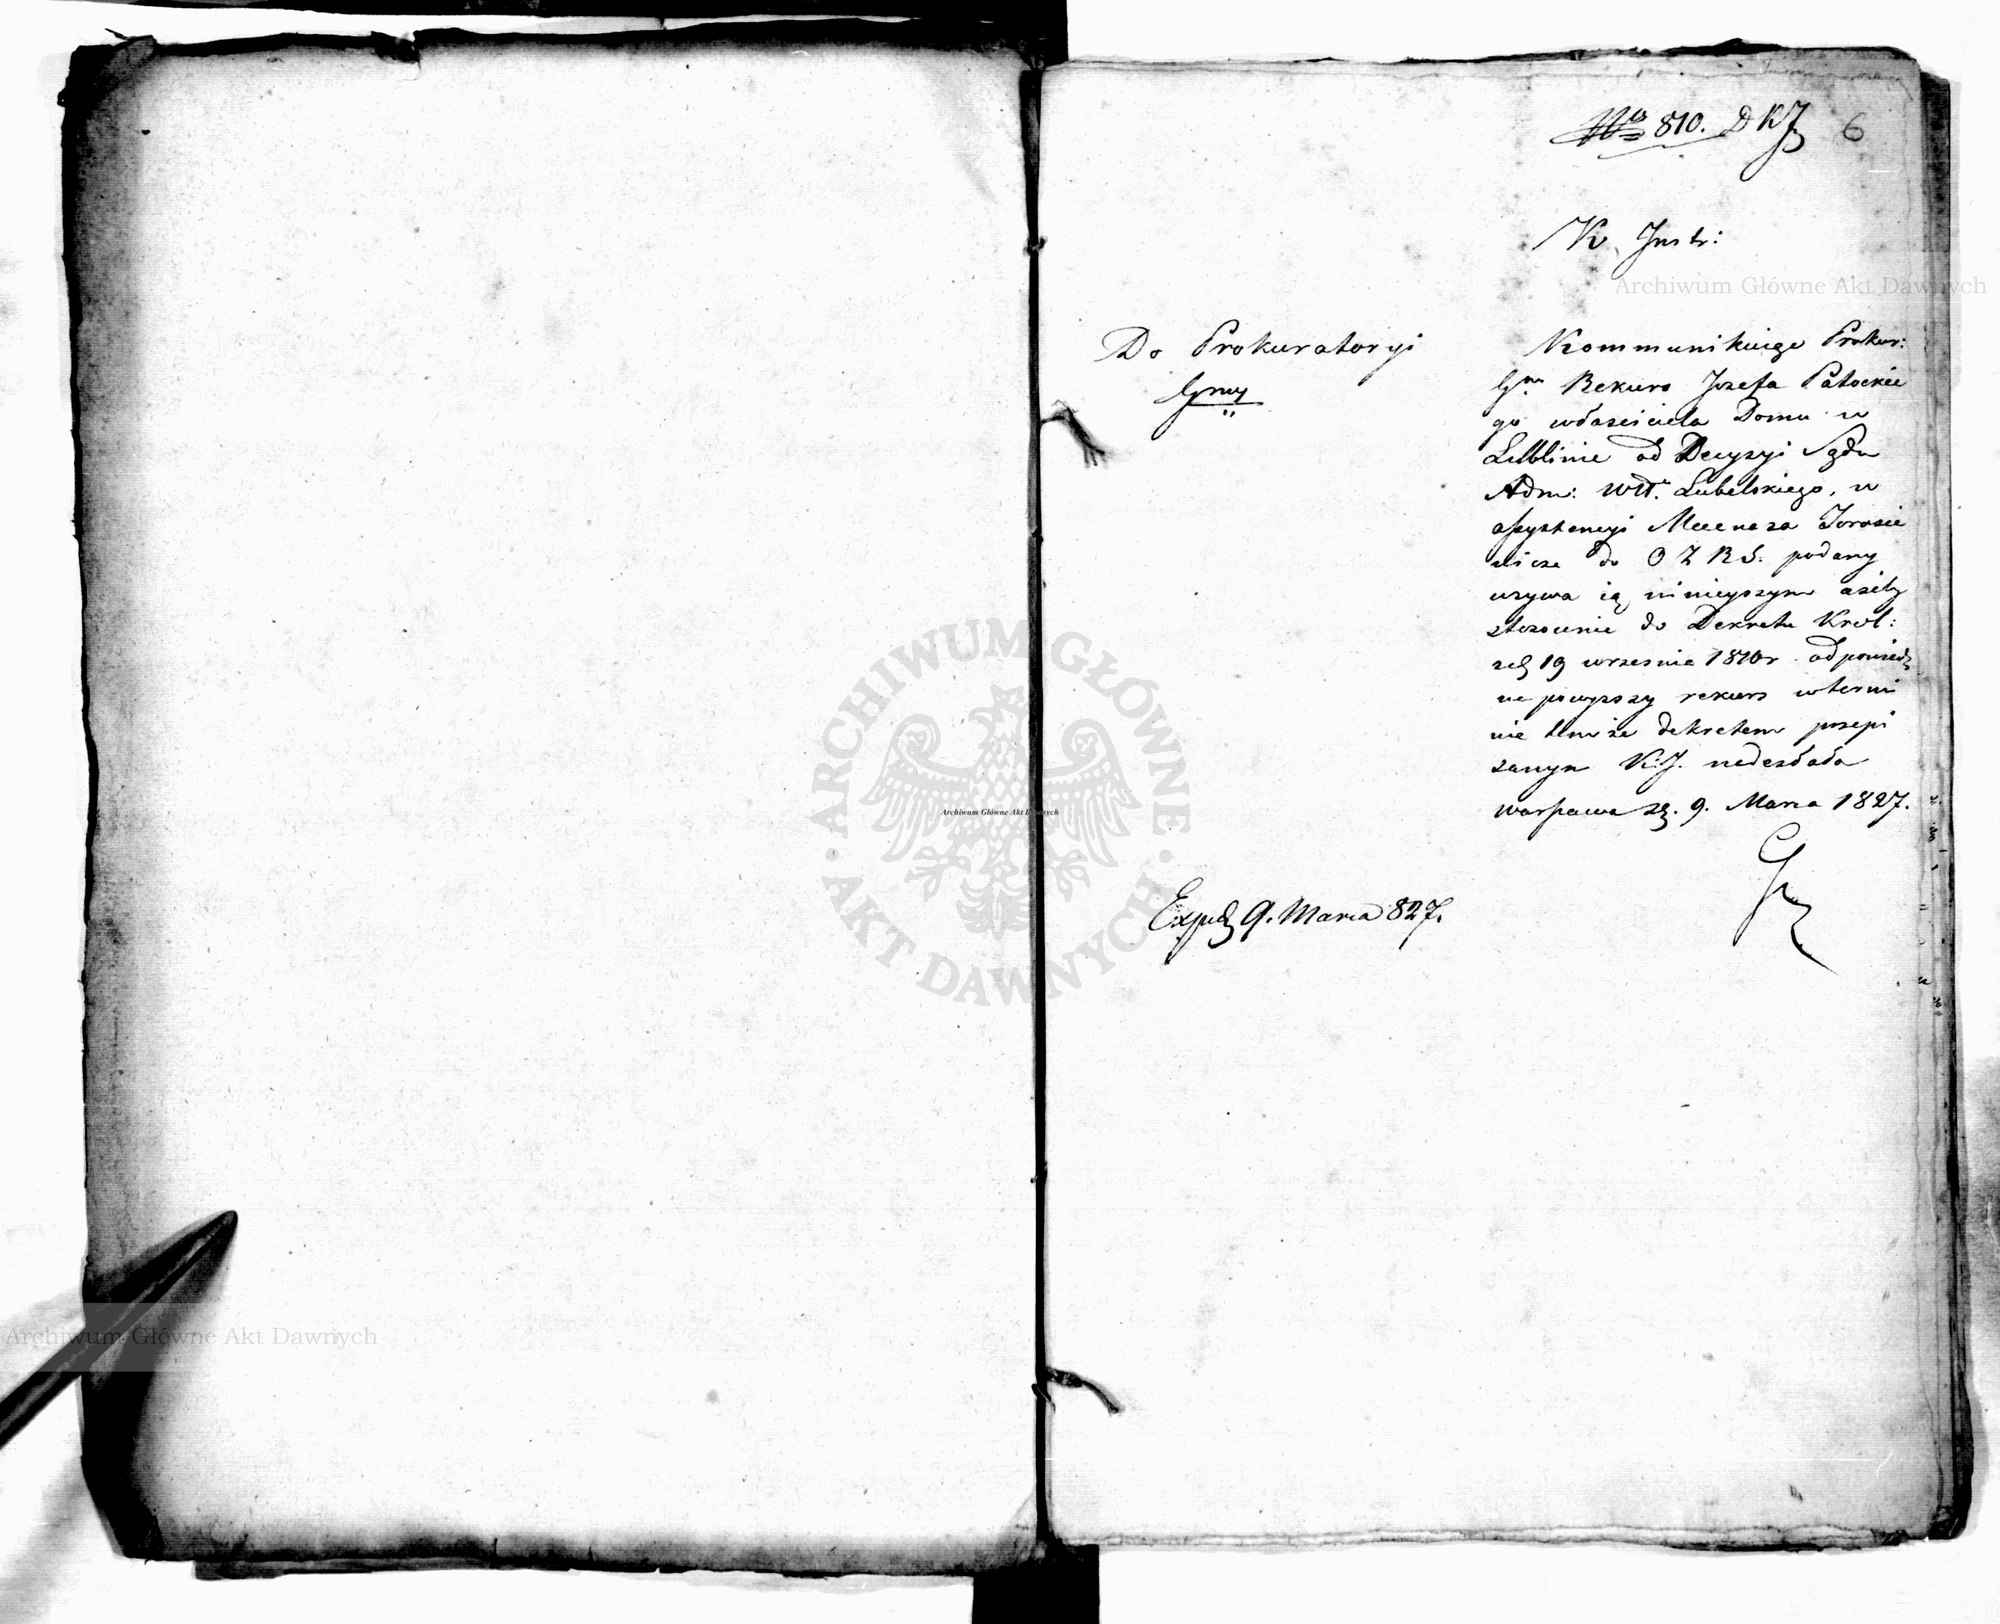 No 810. D K J 6
K. Instr:
Do Prokuratoryi
Gney
Kommunikuiąc Prokur:
Gney Rekurs Jozefa Patockie
go właściciela Domu w
Lublinie od Decyzyi Sądu
Adm: Wtt. Lubelskiego, w
assystencyi Mecenasa Torosie
wicza do O Z R S. podany
wzywa ią ninieyszym ażeby
stosownie do Dekretu Krol:
z d 19 wrzesnia 1810 r. odpowiedz
na powyzszy rekurs w termi
nie temże dekretem przepi
sanym K: J. nadesłała
Warszawa d. 9. Marca 1827.
Exped 9. Marca 827.
Archiwum Główne Akt Dawnych
ARCHIWUM GŁÓWNE
AKT DAWNYCH
Archiwum Główne Akt Dawnych
Archiwum Główne Akt Dawnych